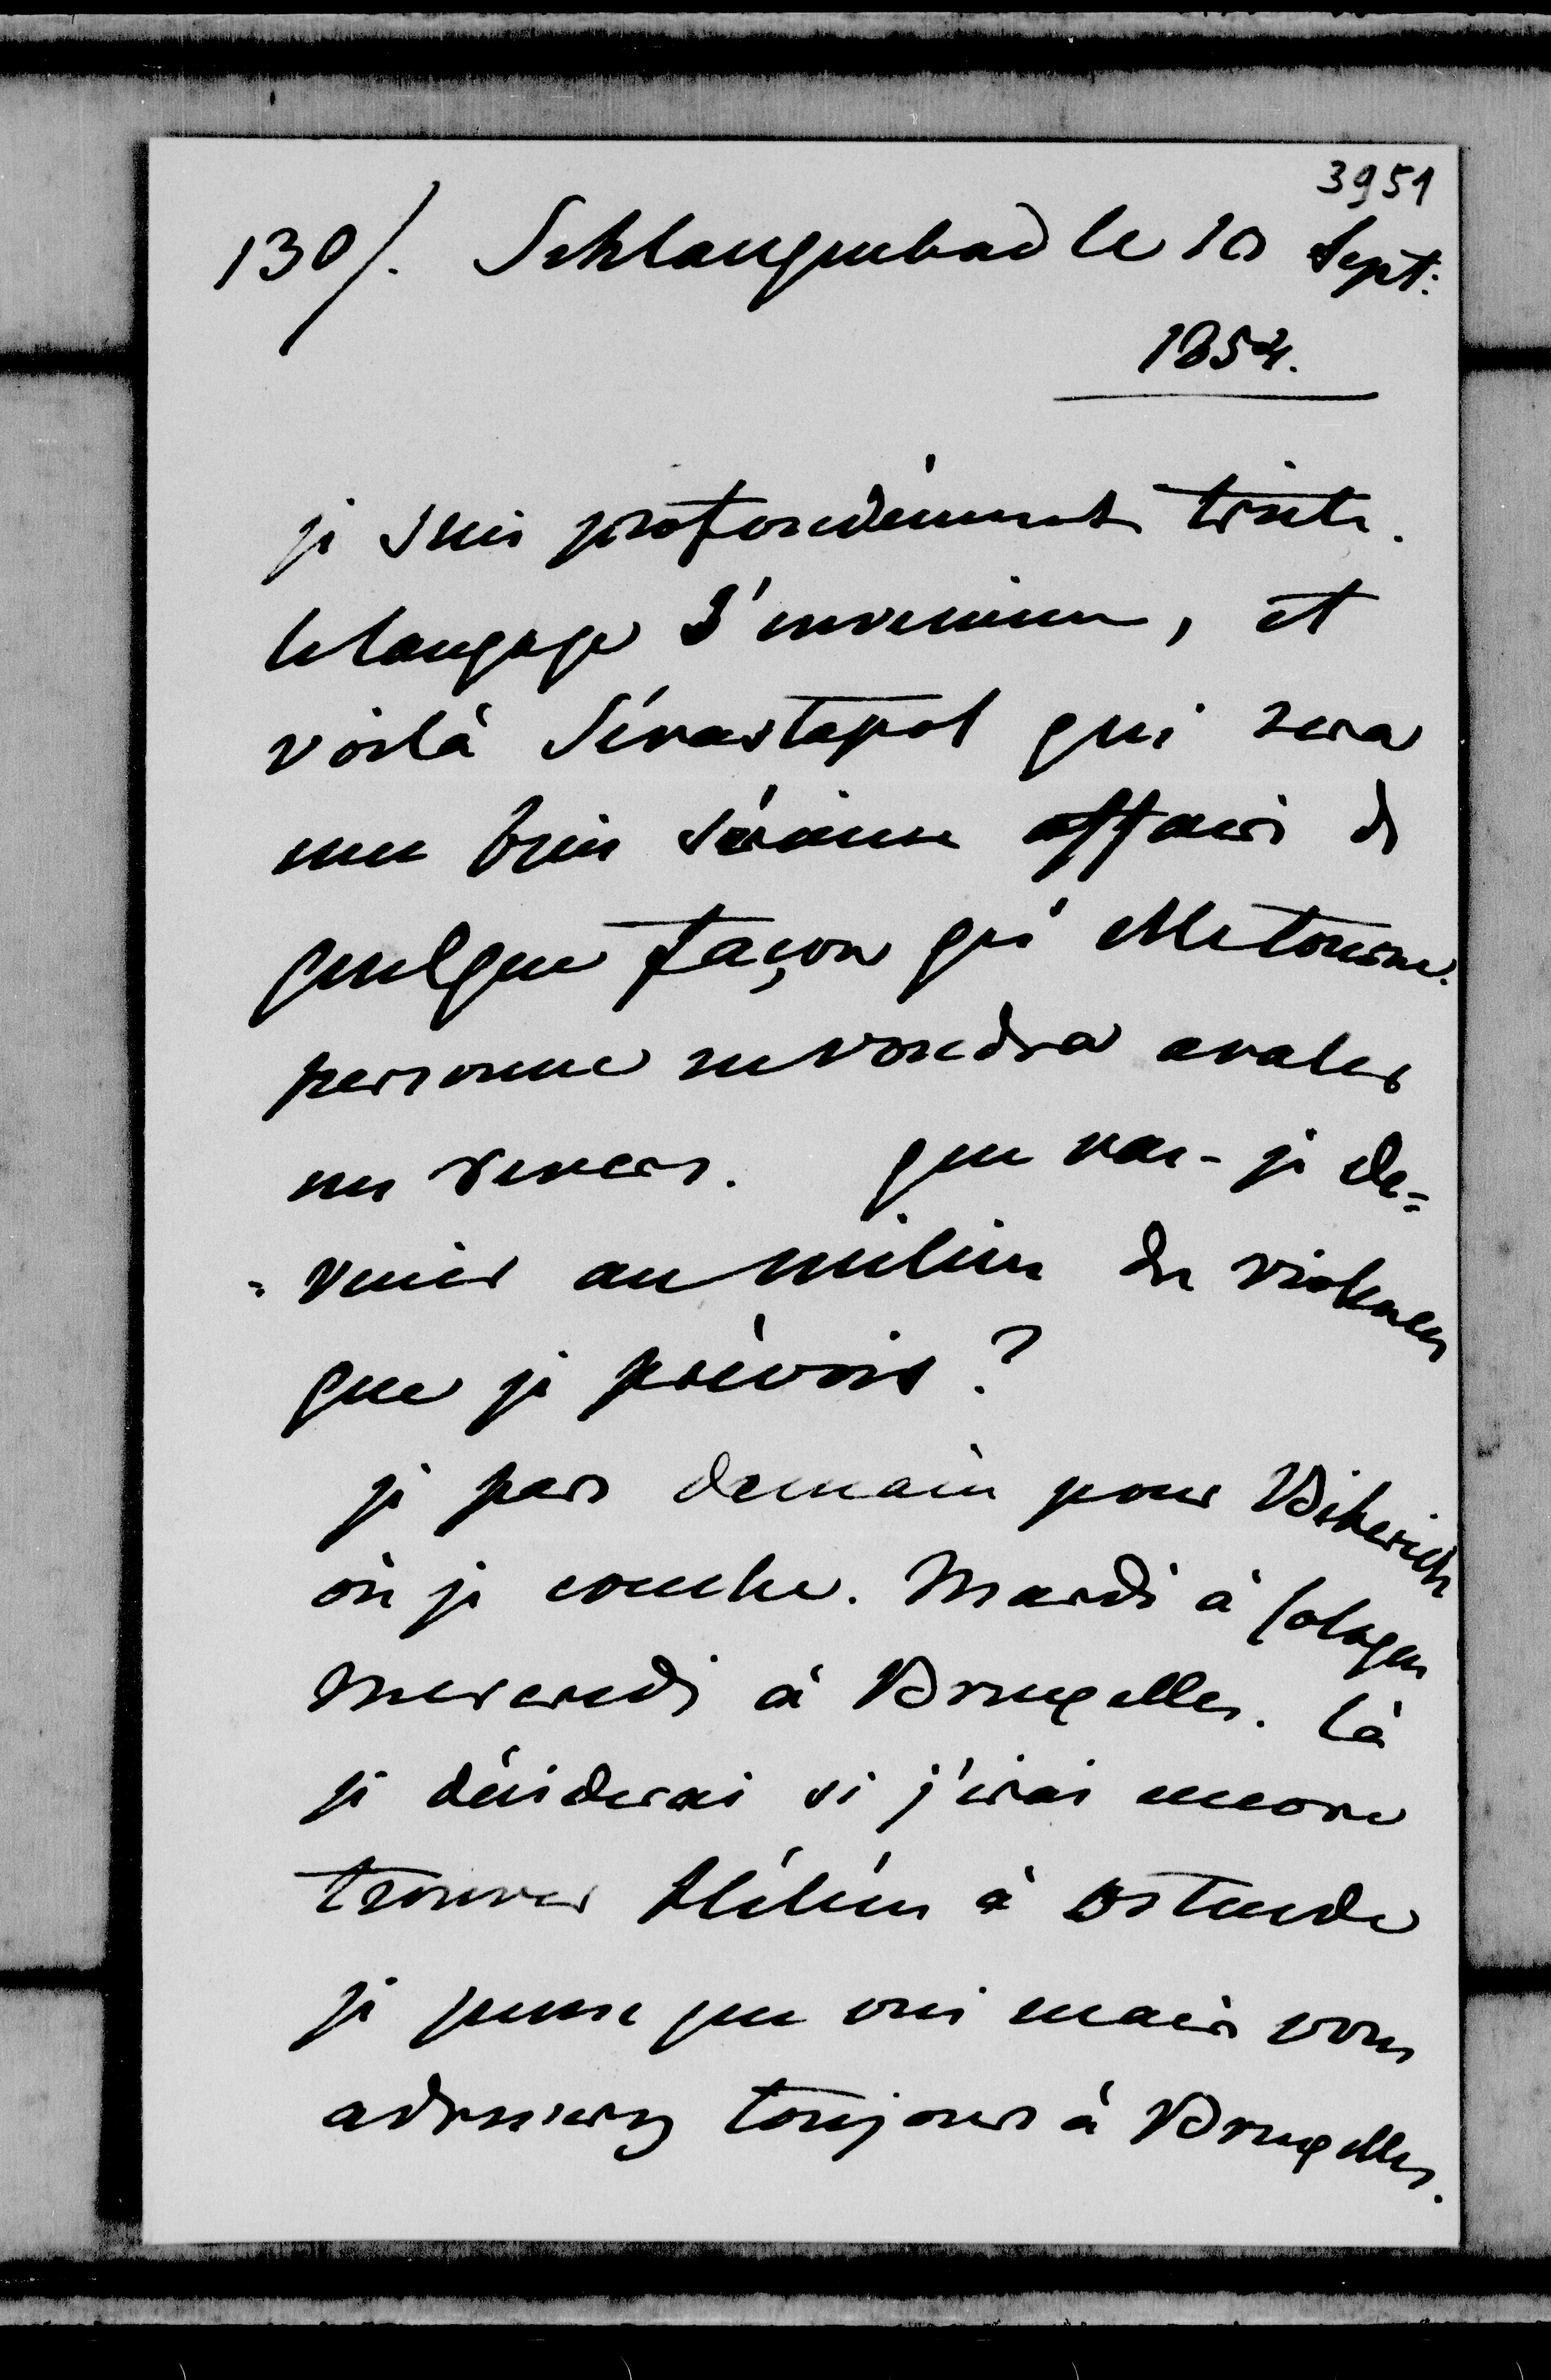 3951
130/. Schlangenbad le 10 Sept:
1854.
je suis profondément triste.
le langage s'envenime, et
voilà Sévastopol qui sera
une bien sérieuse affaire de
quelque façon qu'elle tourne.
personne ne voudra avaler
un revers. que vais-je de=
=venir au milieu des violences
que je prévois?
je pars demain pour Biberich
où je couche. Mardi à Cologne
mercredi à Bruxelles. là
je déciderai si j'irai encore
trouver Hélène à Ostende
je pense que oui mais vous
adresserez toujours à Bruxelles.